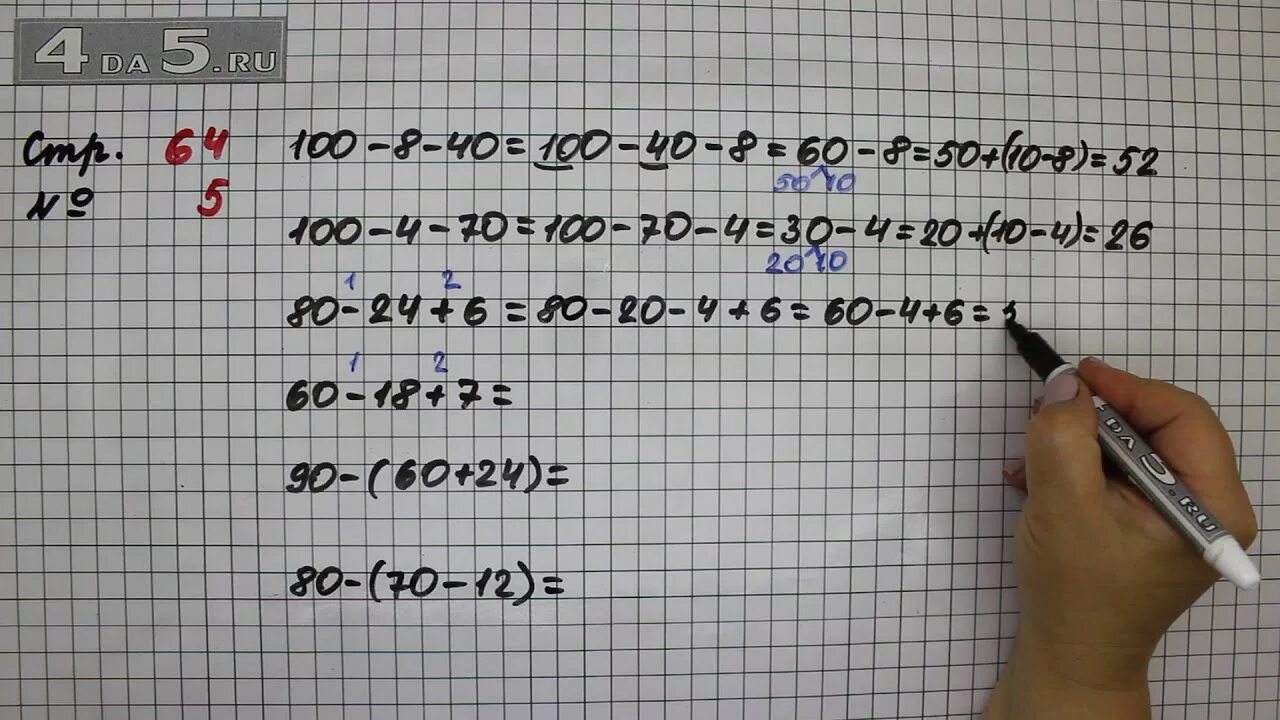 4DA5.RU
Стр. 64
№ 5
100-8-40=100-40-8=60-8=50+(10-8)=52
50 10
100-4-70=100-70-4=30-4=20+(10-4)=26
20 10
1 2
80-24+6=80-20-4+6=60-4+6=
1 2
60-18+7=
90-(60+24)=
80-(70-12)=
DA5.RU